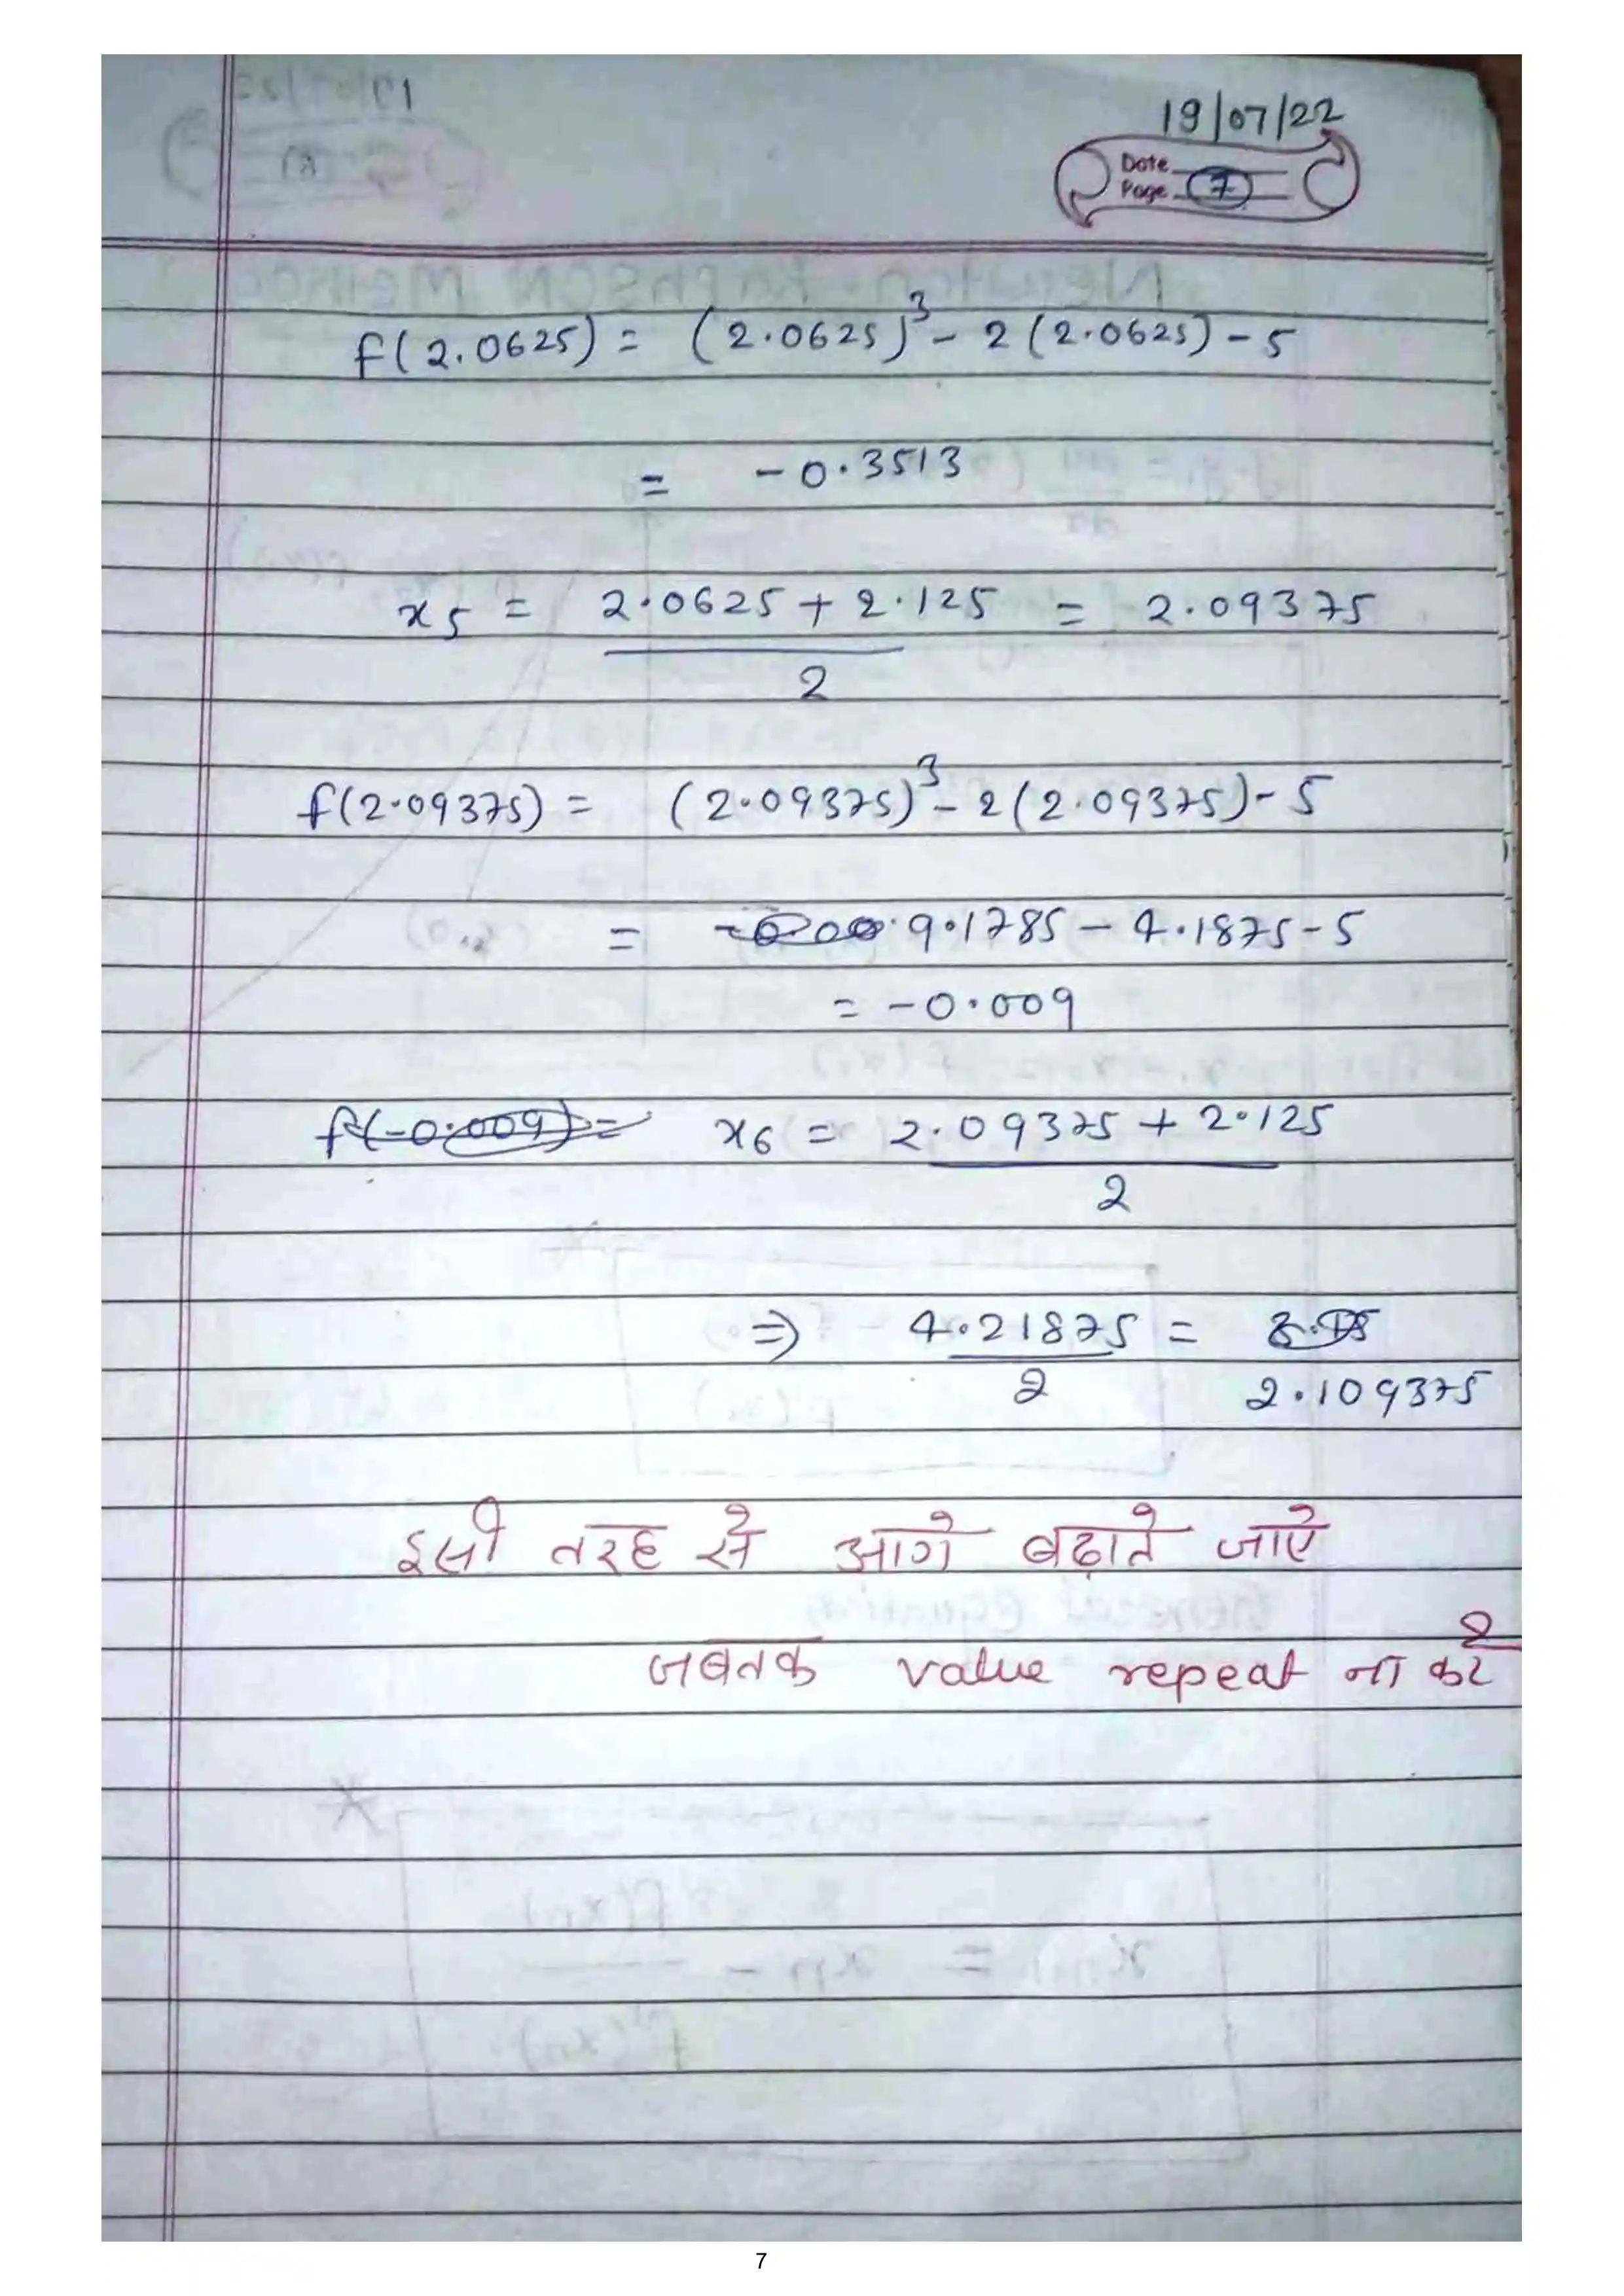 19/07/22
Date
Page 7
f(2.0625) = (2.0625)³ - 2(2.0625) - 5
= -0.3513
x5 = 2.0625 + 2.125 = 2.09375
2
f(2.09375) = (2.09375)³ - 2(2.09375) - 5
= 9.1785 - 4.1875 - 5
= -0.009
f(-0.009) = x6 = 2.09375 + 2.125
2
⇒ 4.21875 =
2 2.109375
इसी तरह से आगे बढ़ाते जाऐ
जबतक value repeat ना करे
7